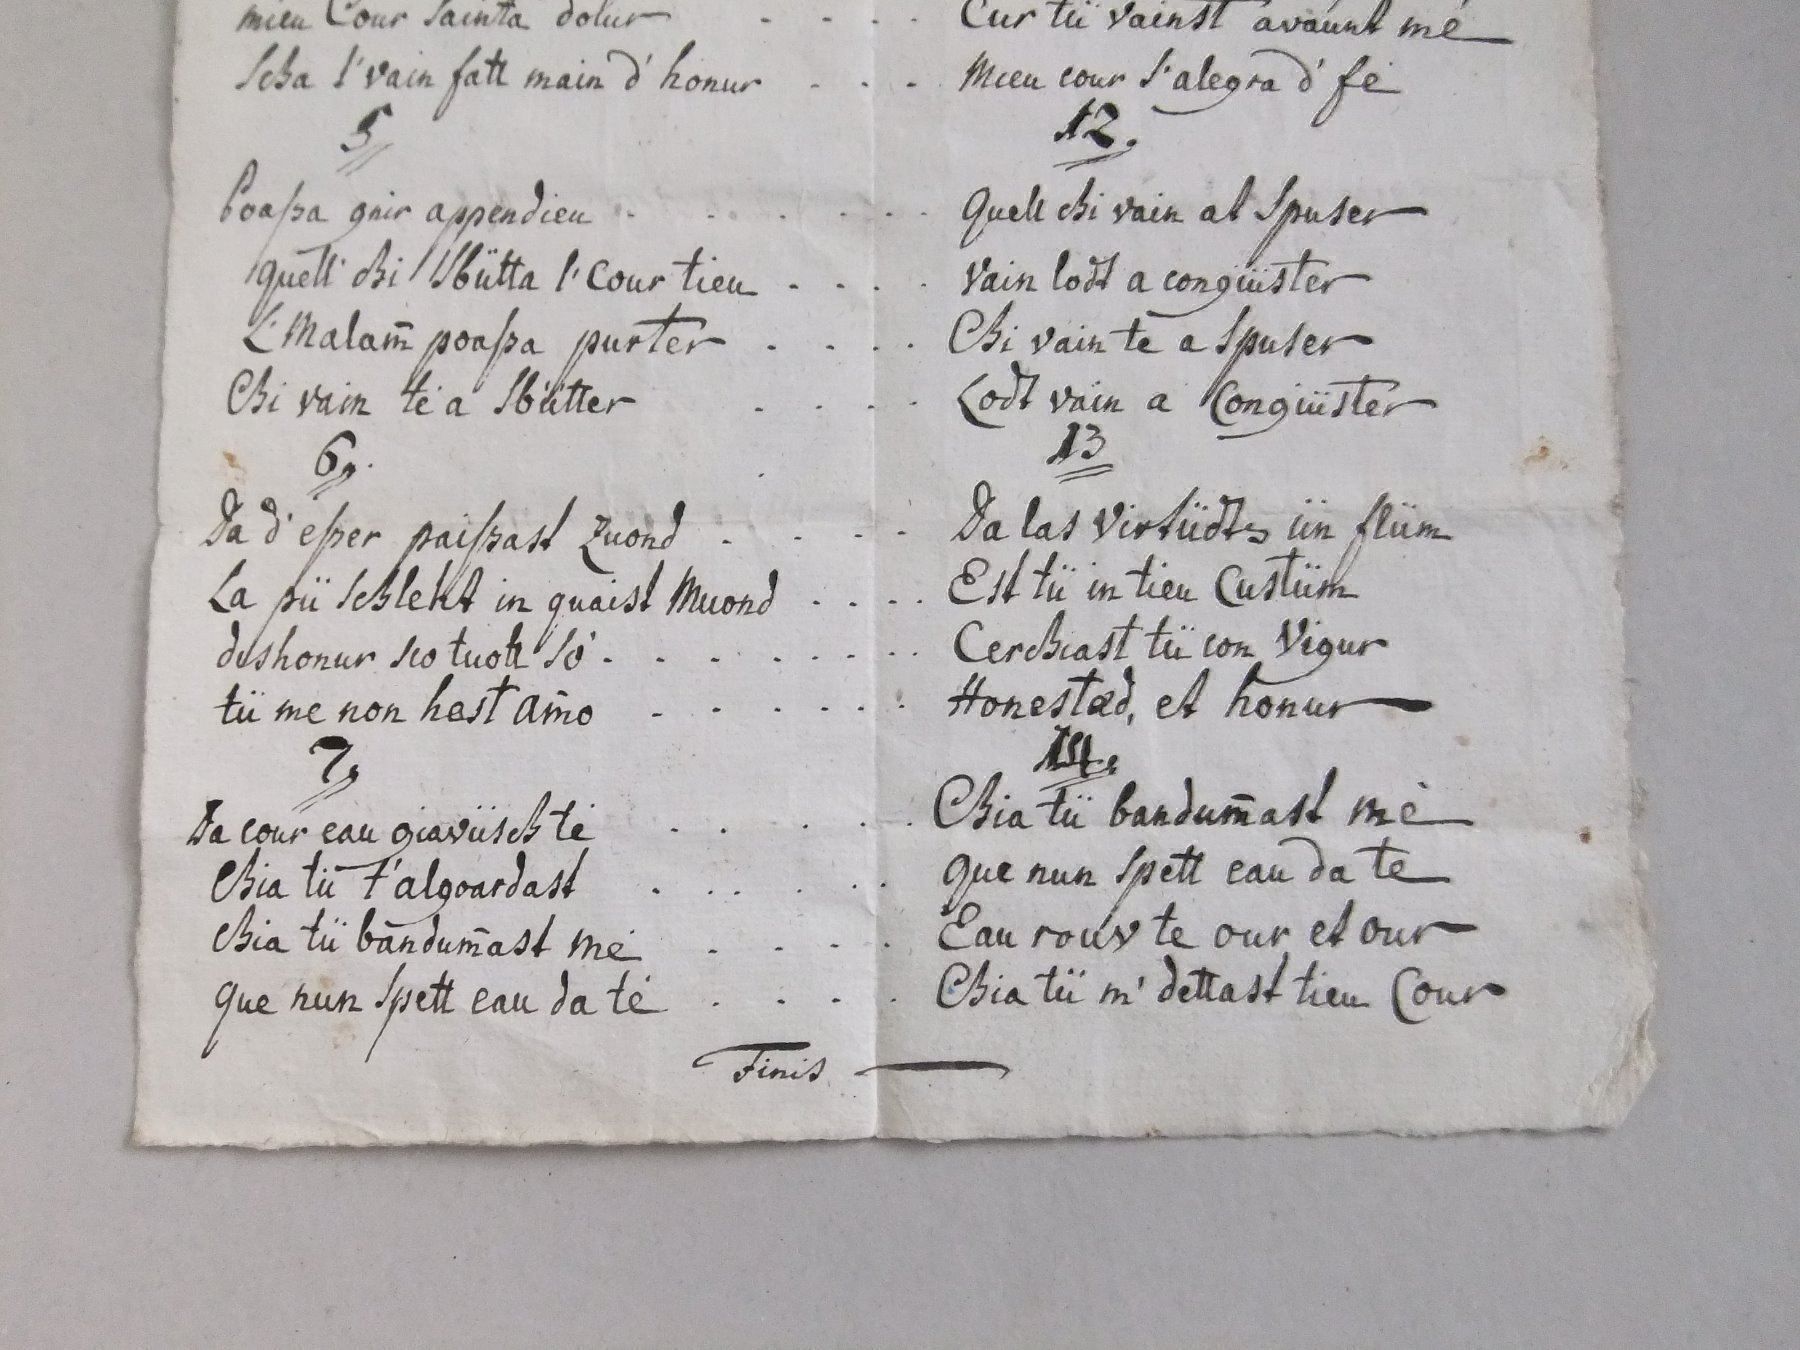 mieu Cour sainta dolur
Scha l'vain fatt main d'honur
5
Poassa gnir appendieu
quell chi sbütta l'Cour tieu
L'Malam̄ poassa purter
Chi vain te a sbütter
6.
Da d'esser paissast zuond
La pü schleht in quaist Muond
dishonur sco tuott só
tü me non hest am̄o
7.
Da cour eau giavüsch te
Chia tü t'algoardast
Chia tü bandum̄ast mé
que nun spett eau da té
Cur tü vainst avaunt mé
Mieu cour s'alegra d'fé
12.
Quell chi vain at spuser
vain lodt a congiüster
Chi vain te a spuser
Lodt vain a Congiüster
13
Da las Virtüdts ün flüm
Est tü in tieu Custüm
Cerchiast tü con Vigur
Honestæd, et honur
14.
Chia tü bandum̄ast mé
que nun spett eau da te
Eau rouv te our et our
Chia tü m'dettast tieu Cour
Finis